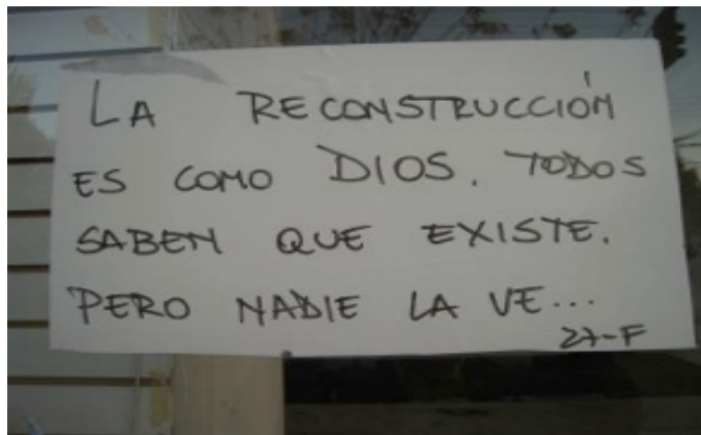 LA RECONSTRUCCIÓN
ES COMO DIOS. TODOS
SABEN QUE EXISTE.
PERO NADIE LA VE...
27-F